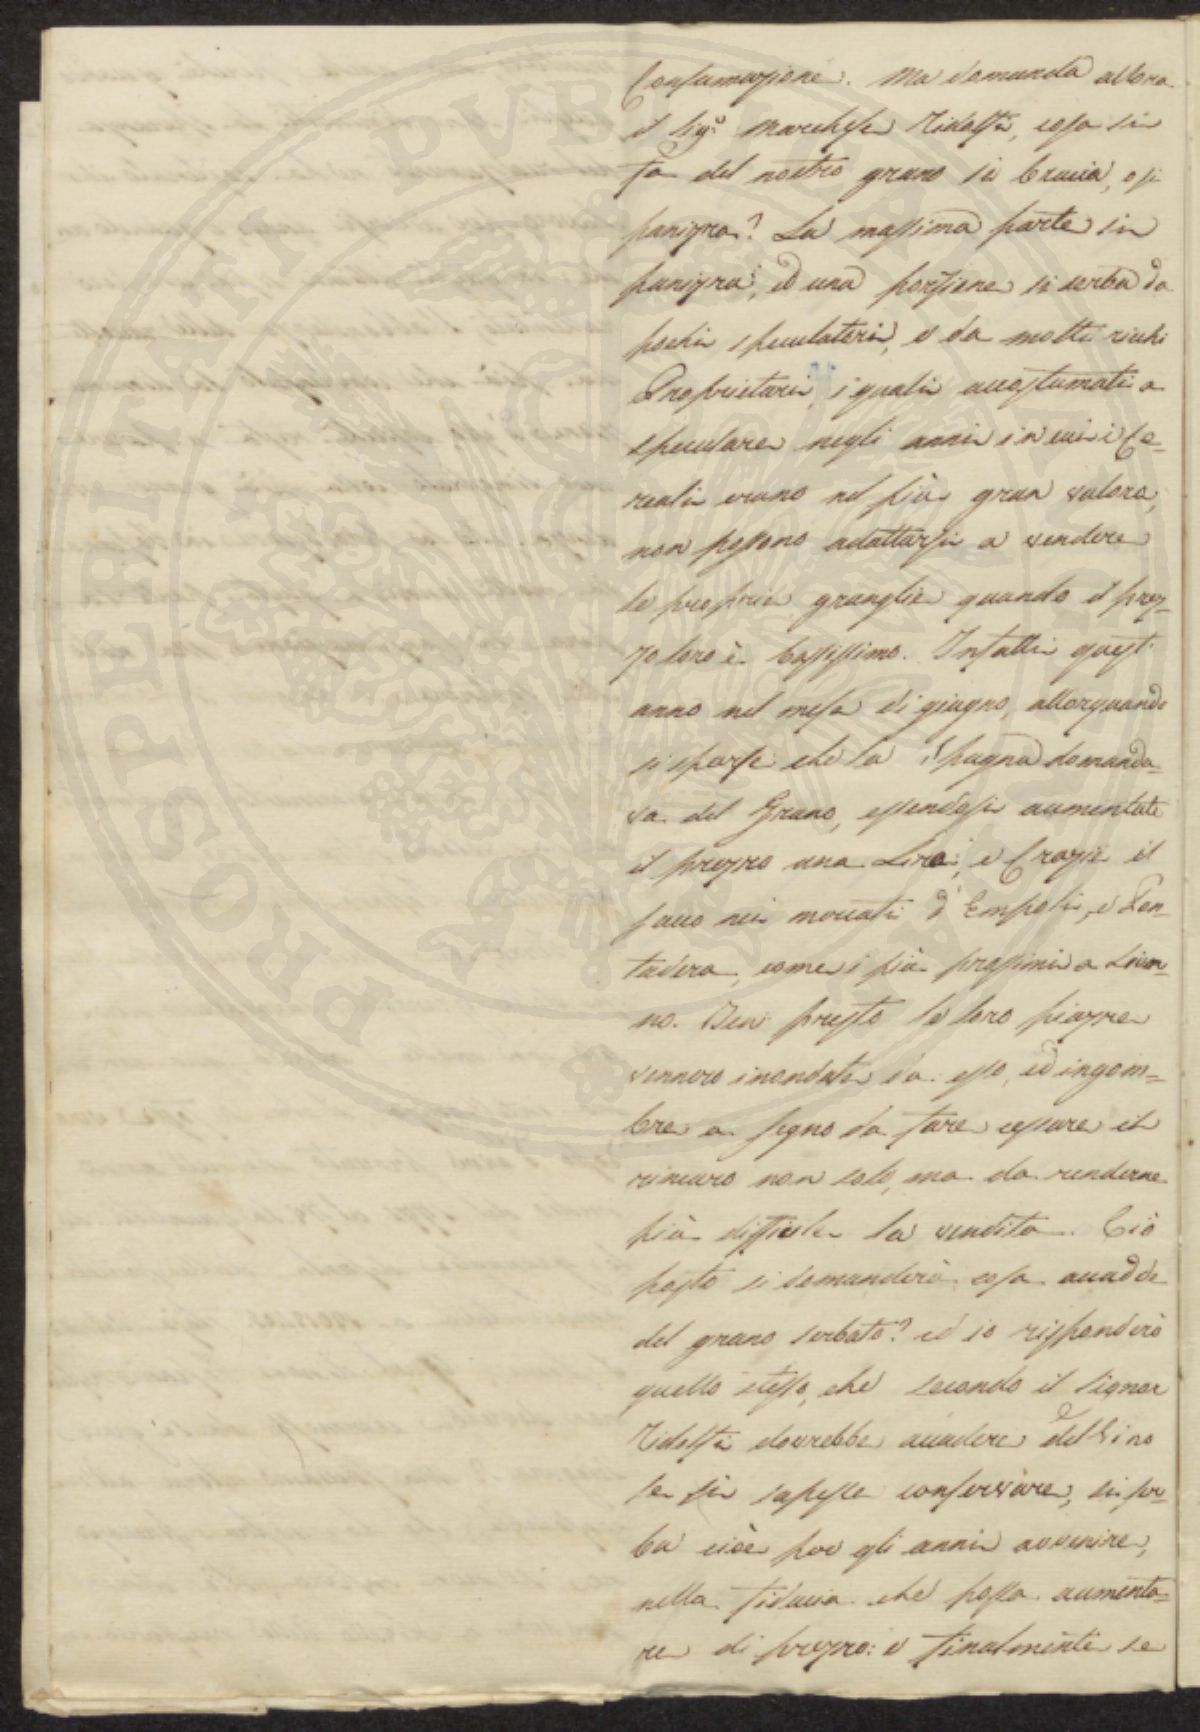 Consumazione. Ma domanda allora
il Sig.r Marchese Ridolfi, cosa si
fa del nostro grano si brucia, o si
panizza? La massima parte si
panizza, ed una porzione si serba da
pochi speculatori, e da molti ricchi
Proprietari, i quali accostumati a
speculare negli anni in cui i Ce-
reali erano nel più gran valore,
non possono adattarsi a vendere
le proprie granaglie quando il prez-
zo loro è bassissimo. Infatti quest'
anno nel mese di giugno, allorquando
si sparse che la Spagna domanda-
va del Grano, essendosi aumentato
il prezzo una Lira, e Crazie il
sacco nei mercati d'Empoli, e Pon-
tadera, come i più prossimi a Livor-
no. Ben presto le loro piazze
vennero inondate da esso, ed ingom-
bre a segno da fare cessare il
rincaro non solo, ma da renderne
più difficile la vendita. Ciò
posto si domanderà cosa accadde
del grano serbato? ed io risponderò
quello stesso, che secondo il Signor
Ridolfi dovrebbe accadere del Vino
se si sapesse conservare, si ser-
ba cioè per gli anni avvenire,
nella fiducia che possa aumenta-
re di prezzo: e finalmente se
PROSPERITATI PVBLICAE AVGENDAE